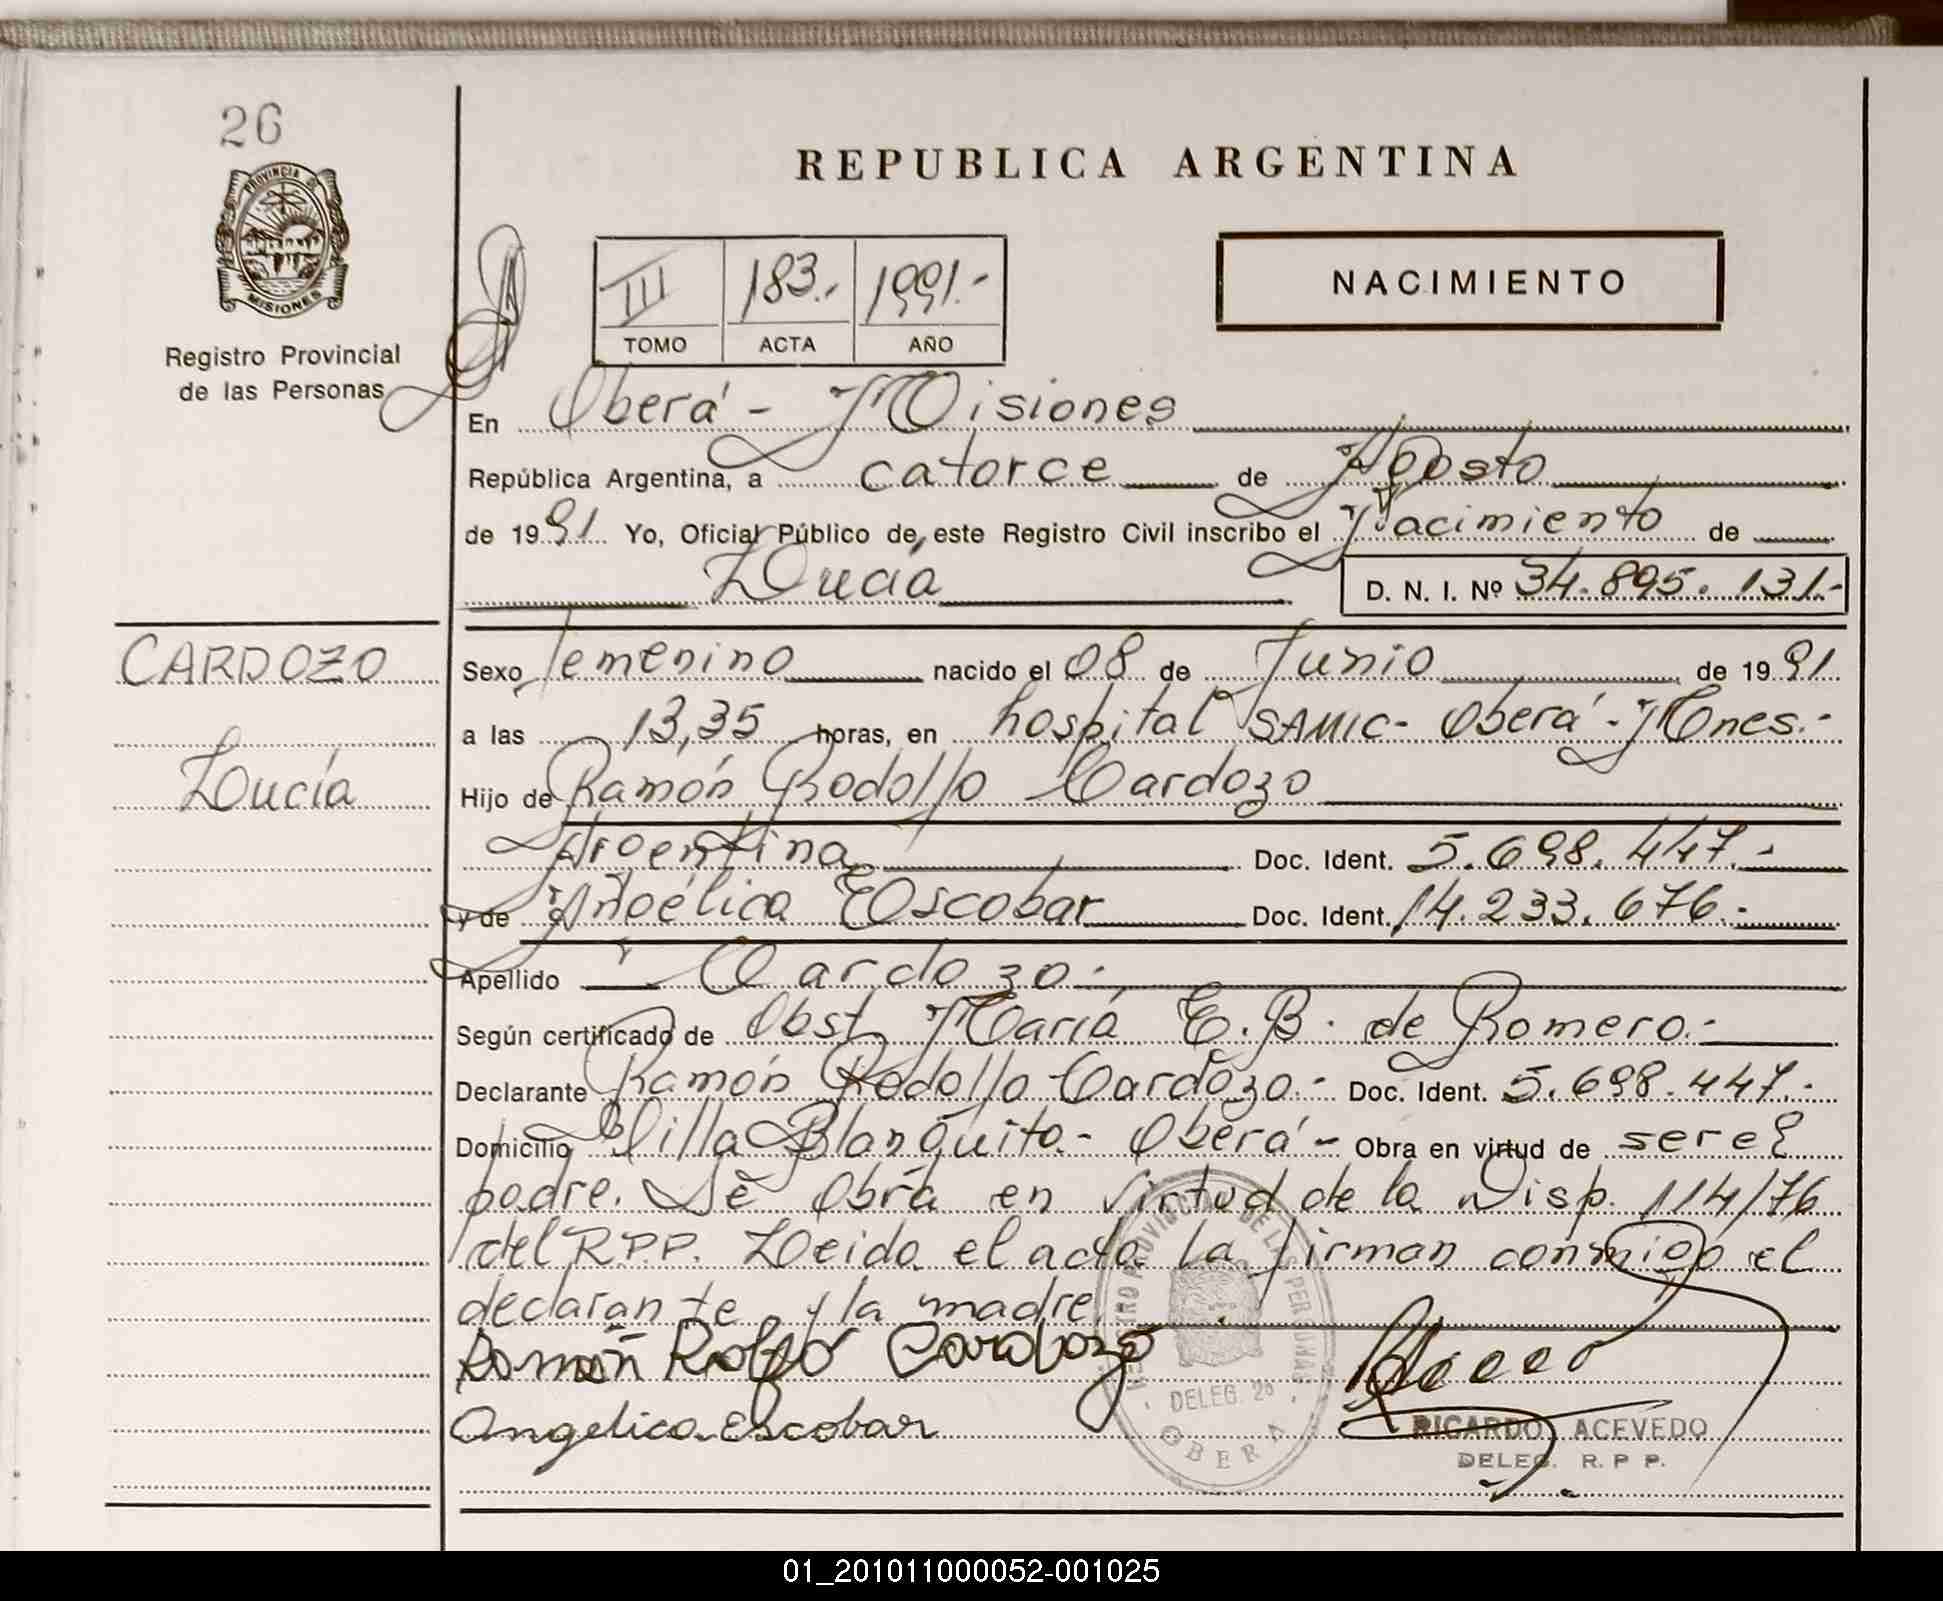 26
PROVINCIA DE
MISIONES
Registro Provincial
de las Personas
REPUBLICA ARGENTINA
III 183.- 1991.-
TOMO ACTA AÑO
NACIMIENTO
En Oberá - Misiones
República Argentina, a catorce de Agosto
de 1991 Yo, Oficial Público de este Registro Civil inscribo el Nacimiento de
Lucía
D. N. I. Nº 34.895.131.-
CARDOZO
Lucía
Sexo Femenino nacido el 08 de Junio de 1991
a las 13,35 horas, en hospital SAMIC- Oberá - Mnes.-
Hijo de Ramón Rodolfo Cardozo
Argentina Doc. Ident. 5.698.447.-
y de Angélica Escobar Doc. Ident. 14.233.676.-
Apellido Cardozo.-
Según certificado de Obst. María E. B. de Romero.-
Declarante Ramón Rodolfo Cardozo.- Doc. Ident. 5.698.447.-
Domicilio Villa Blanquita.- Oberá - Obra en virtud de ser el
padre. Se obra en virtud de la Disp. 114/76
del R.P.P. Leida el acta la firman conmigo el
declarante y la madre.
Ramón Rolfo Cardozo
Angelica Escobar
REGISTRO PROVINCIAL DE LAS PERSONAS
DELEG 2º
OBERA
RICARDO ACEVEDO
DELEG. R. P P.
01_201011000052-001025